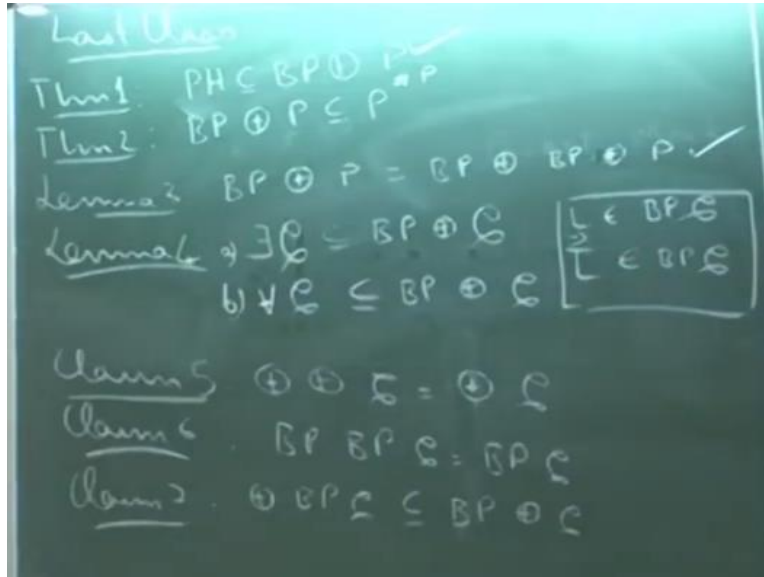 Last Class
Thm1. PH ⊆ BP ⊕ P ✓
Thm2: BP ⊕ P ⊆ P^#P
Lemma3 BP ⊕ P = BP ⊕ BP ⊕ P ✓
Lemma4 a) ∃C ⊆ BP ⊕ C
L ∈ BP C
b) ∀C ⊆ BP ⊕ C
L̅ ∈ BP C
Claim5 ⊕ ⊕ C = ⊕ C
Claim6. BP BP C = BP C
Claim7. ⊕ BP C ⊆ BP ⊕ C